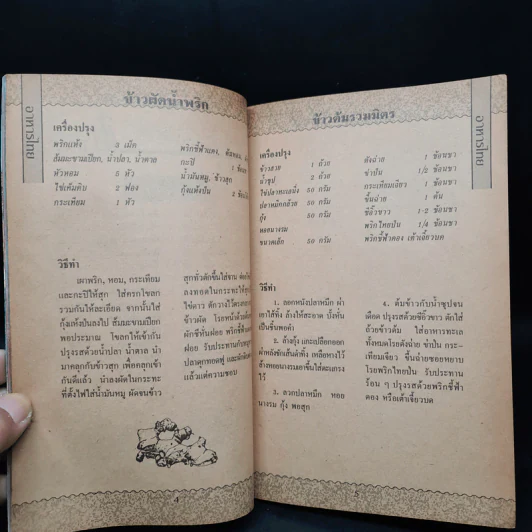 อาหารไทย
ข้าวผัดน้ำพริก
เครื่องปรุง
พริกแห้ง 3 เม็ด
ส้มมะขามเปียก, น้ำปลา, น้ำตาล
หัวหอม 5 หัว
ไข่เค็มดิบ 2 ฟอง
กระเทียม 1 หัว
พริกชี้ฟ้าแดง,
กะปิ 1 ช้อน
น้ำมันหมู, ข้าวสุก
กุ้งแห้งป่น 2
วิธีทำ
เผาพริก, หอม, กระเทียม
และกะปิให้สุก ใส่ครกโขลก
รวมกันให้ละเอียด จากนั้นใส่
กุ้งแห้งป่นลงไป ส้มมะขามเปียก
พอประมาณ โขลกให้เข้ากัน
ปรุงรสด้วยน้ำปลา น้ำตาล นำ
มาคลุกกับข้าวสุก เพื่อคลุกเข้า
กันดีแล้ว นำลงผัดในกระทะ
ที่ตั้งไฟใส่น้ำมันหมู ผัดจนข้าว
สุกทั่วตักขึ้นใส่จาน
ลงทอดในกระทะให้สุก
ไข่ดาว ตักวางไว้ตรงกลาง
ข้าวผัด โรยหน้าด้วย
ผักชีหั่นฝอย พริกชี้ฟ้า
ฝอย รับประทานกับ
ปลาดุกทอดฟู และผัก
แล้วแต่ความชอบ
4
ข้าวต้มรวมมิตร
อาหารไทย
เครื่องปรุง
ข้าวสวย 1 ถ้วย
น้ำซุป 2 ถ้วย
เนื้อปลากะพงนึ่ง 50 กรัม
ปลาหมึกกล้วย 50 กรัม
กุ้ง 50 กรัม
หอยนางรม
ขนาดเล็ก 50 กรัม
ตังฉ่าย 1 ช้อนชา
ข่าป่น 1/2 ช้อนชา
กระเทียมเจียว 1 ช้อนชา
ขึ้นฉ่าย 1 ต้น
ซีอิ๊วขาว 1-2 ช้อนชา
พริกไทยป่น 1/4 ช้อนชา
พริกชี้ฟ้าดอง เต้าเจี้ยวบด
วิธีทำ
1. ลอกหนังปลาหมึก ผ่า
เอาไส้ทิ้ง ล้างให้สะอาด บั้งหั่น
เป็นชิ้นพอคำ
2. ล้างกุ้ง แกะเปลือกออก
ผ่าหลังชักเส้นดำทิ้ง เหลือหางไว้
ล้างหอยนางรมเอาขึ้นใส่ตะแกรง
ไว้
3. ลวกปลาหมึก หอย
นางรม กุ้ง พอสุก
4. ต้มข้าวกับน้ำซุปจน
เดือด ปรุงรสด้วยซีอิ๊วขาว ตักใส่
ถ้วยข้าวต้ม ใส่อาหารทะเล
ทั้งหมดโรยตังฉ่าย ข่าป่น กระ-
เทียมเจียว ขึ้นฉ่ายซอยหยาบ
โรยพริกไทยป่น รับประทาน
ร้อน ๆ ปรุงรสด้วยพริกชี้ฟ้า
ดอง หรือเต้าเจี้ยวบด
5